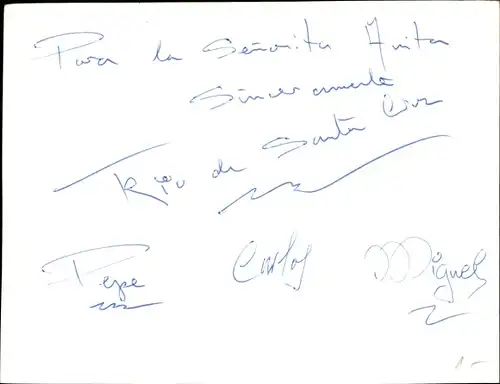 Para la Señorita Anita
Sinceramente
Trio de Santa Cruz
Pepe Carlos Miguel
1-